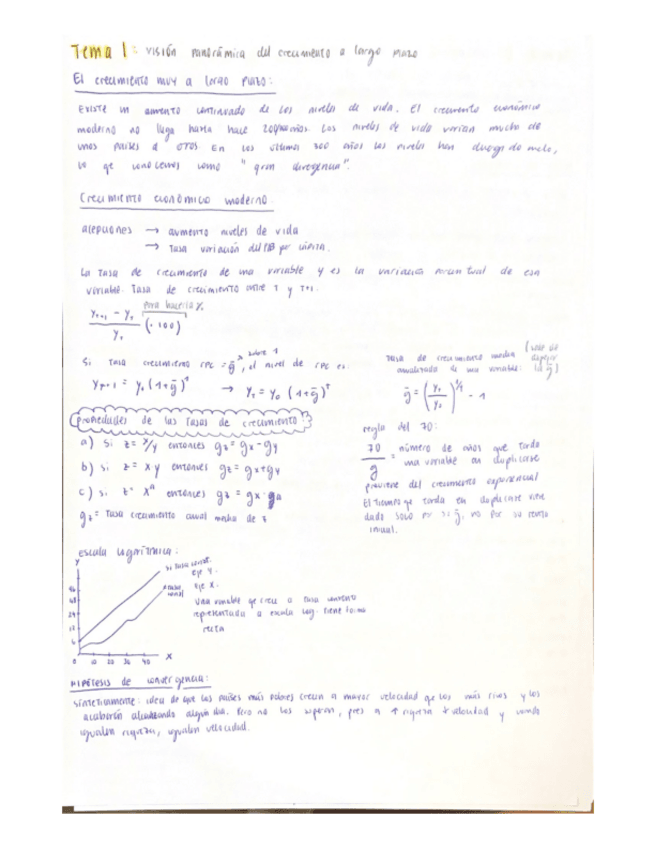 Tema 1: visión panorámica del crecimiento a largo plazo
El crecimiento muy a largo plazo:
Existe un aumento continuado de los niveles de vida. El crecimiento económico
moderno no llega hasta hace 200 años. Los niveles de vida varían mucho de
unos países a otros. En los últimos 300 años los niveles han
lo qe conocemos como "gran divergencia".
Crecimiento económico moderno:
acepciones → aumento niveles de vida
→ Tasa variación del PIB per
La tasa de crecimiento de una variable y es la variación porcentual de esa
variable. Tasa de crecimiento entre t y t+1.
para hacerla %
(yt+1 - yt) / yt (· 100)
Si tasa crecimiento rpc = ḡ, el nivel de rpc es:
= y0 (1+ḡ)^t → yt = y0 (1+ḡ)^t
Tasa de crecimiento media (sale de despejar la ḡ)
anualizada de una variable:
ḡ = (yt / y0)^1/t - 1
Propiedades de las tasas de crecimiento:
a) Si z = x/y entonces gz = gx - gy
b) si z = xy entonces gz = gx + gy
c) si z = x^a entonces gz = gx · a
gz = Tasa crecimiento anual media de z
regla del 70:
70 / g = número de años que tarda
una variable en duplicarse
proviene del crecimiento exponencial
El tiempo qe tarda en duplicarse viene
dado solo por su ḡ, no por su renta
inicial.
escala logarítmica:
y
si tasa const.
eje y.
eje x.
96
48
24
12
6
0 10 20 30 40 x
Una variable qe crece a tasa constante
representada a escala log. tiene forma
recta
Hipótesis de convergencia:
Sintéticamente: idea de qe los países más pobres crecen a mayor velocidad qe los más ricos y los
acabarán alcanzando algún día. Pero no los superan, pues a ↑ riqueza ↓ velocidad y cuando
igualen riqueza, igualen velocidad.